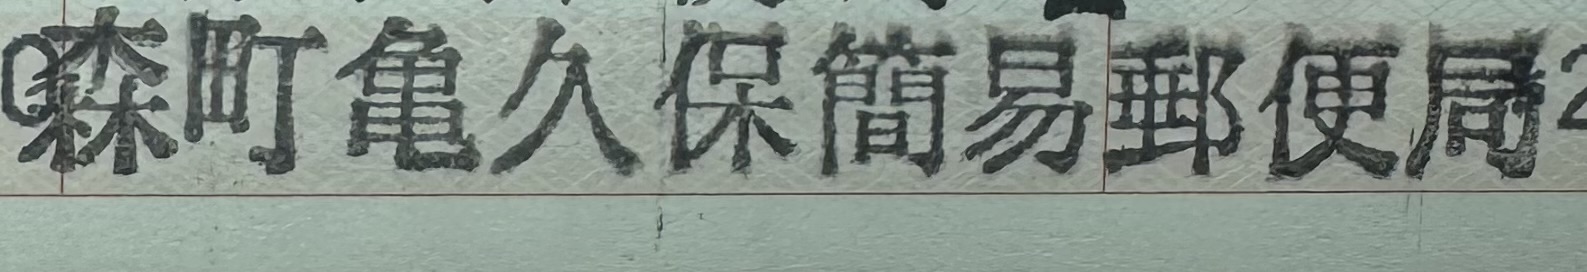 森町亀久保簡易郵便局